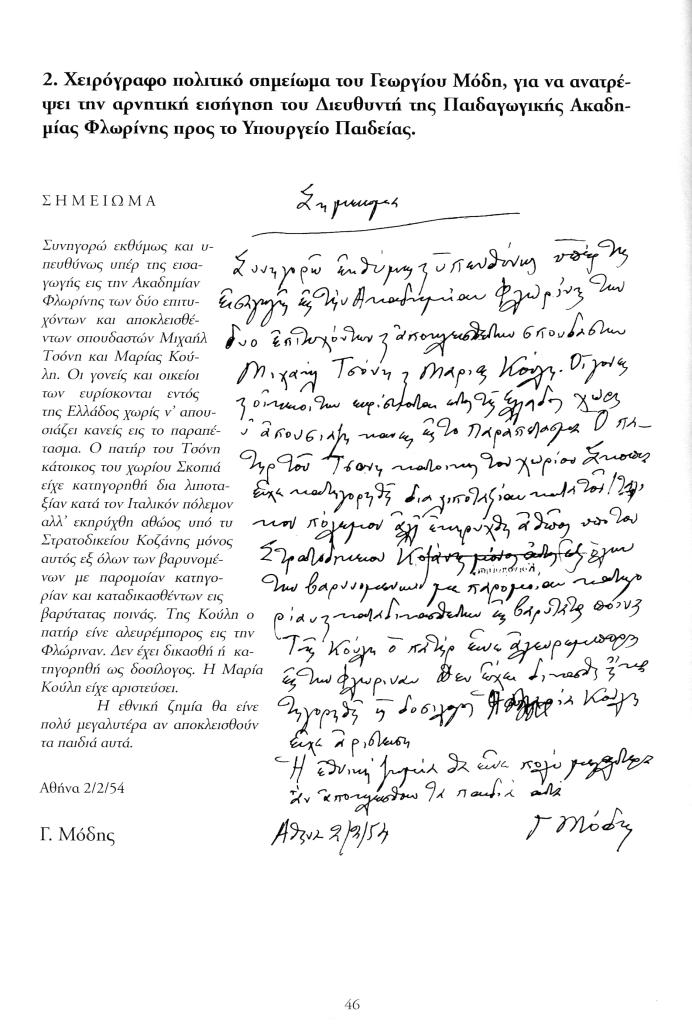 2. Χειρόγραφο πολιτικό σημείωμα του Γεωργίου Μόδη, για να ανατρέ-
ψει την αρνητική εισήγηση του Διευθυντή της Παιδαγωγικής Ακαδη-
μίας Φλωρίνης προς το Υπουργείο Παιδείας.
ΣΗΜΕΙΩΜΑ
Συνηγορώ εκθύμως και υ-
πευθύνως υπέρ της εισα-
γωγής εις την Ακαδημίαν
Φλωρίνης των δύο επιτυ-
χόντων και αποκλεισθέ-
ντων σπουδαστών Μιχαήλ
Τσόνη και Μαρίας Κού-
λη. Οι γονείς και οικείοι
των ευρίσκονται εντός
της Ελλάδος χωρίς ν' απου-
σιάζει κανείς εις το παραπέ-
τασμα. Ο πατήρ του Τσόνη
κάτοικος του χωρίου Σκοπιά
είχε κατηγορηθή δια λιποτα-
ξίαν κατά τον Ιταλικόν πόλεμον
αλλ' εκηρύχθη αθώος υπό τυ
Στρατοδικείου Κοζάνης μόνος
αυτός εξ όλων των βαρυνομέ-
νων με παρομοίαν κατηγο-
ρίαν και καταδικασθέντων εις
βαρύτατας ποινάς. Της Κούλη ο
πατήρ είνε αλευρέμπορος εις την
Φλώριναν. Δεν έχει δικασθή ή κα-
τηγορηθή ως δοσίλογος. Η Μαρία
Κούλη είχε αριστεύσει.
Η εθνική ζημία θα είνε
πολύ μεγαλυτέρα αν αποκλεισθούν
τα παιδιά αυτά.
Αθήνα 2/2/54
Γ. Μόδης
Σημείωμα
Συνηγορώ εκθύμως ϗ υπευθύνως υπέρ της
εισαγωγής εις την Ακαδημίαν Φλωρίνης των
δυο επιτυχόντων ϗ αποκλεισθέντων σπουδαστών
Μιχαήλ Τσόνη ϗ Μαρίας Κούλη. Οι γονείς
ϗ οικείοι των ευρίσκονται εντός της Ελλάδος χωρίς
ν' απουσιάζη κανείς εις το Παραπέτασμα. Ο πα-
τήρ του Τσόνη κάτοικος του χωρίου Σκοπιάς
είχε κατηγορηθή δια λιποταξίαν κατά τον Ιταλι
κον πόλεμον αλλ' εκηρύχθη αθώος υπό του
Στρατοδικείου Κοζάνης μόνος αυτός εξ όλων
των βαρυνομένων με παρομοίαν κατηγο
ρίαν ϗ καταδικασθέντων εις βαρυτάτας ποινάς
Της Κούλη ο πατήρ είνε αλευρέμπορος
εις την Φλώριναν Δεν έχει δικασθή ή κα
τηγορηθή ως δοσίλογος Η Μαρία Κούλη
είχε αριστεύσει
Η εθνική ζημία θα είνε πολύ μεγαλυτέρα
αν αποκλεισθούν τα παιδιά αυτά
Αθήνα 2/2/54
Γ Μόδης
46